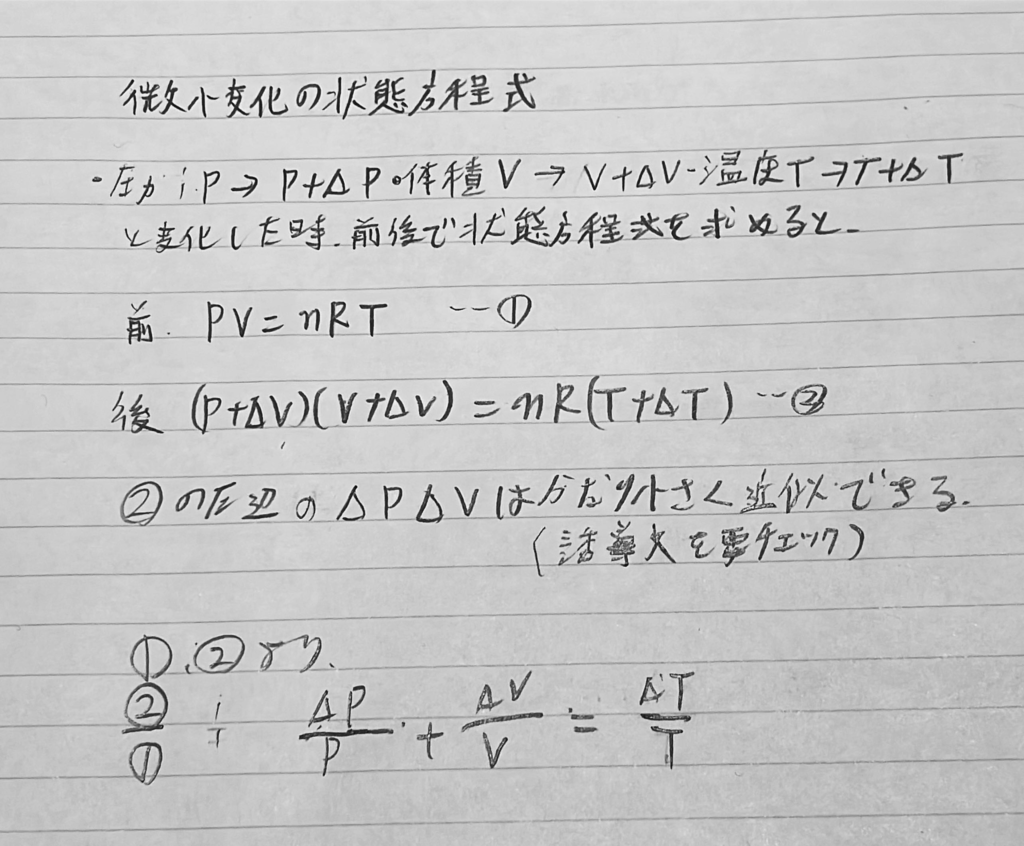 微小変化の状態方程式
・圧力:P→P+ΔP・体積V→V+ΔV・温度T→T+ΔT
と変化した時、前後で状態方程式を求めると、
前. PV=nRT …①
後 (P+ΔV)(V+ΔV)=nR(T+ΔT) …②
②の左辺のΔPΔVはかなり小さく近似できる.
(誘導文を要チェック)
①、②より、
②/① ÷ ΔP/P + ΔV/V = ΔT/T